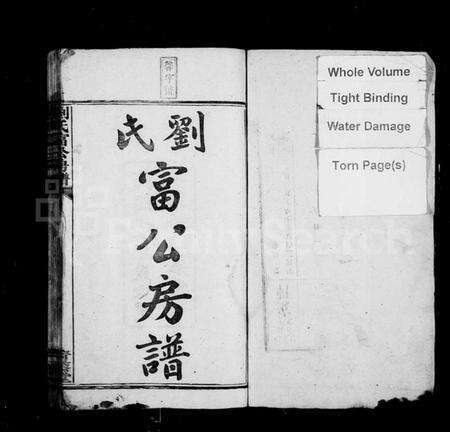 劉氏
富公房譜
Whole Volume
Tight Binding
Water Damage
Torn Page(s)
FamilySearch